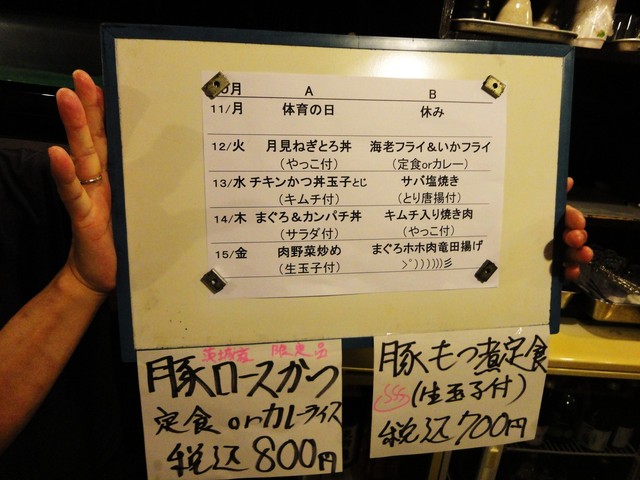 0月 A B
11/月 体育の日 休み
12/火 月見ねぎとろ丼 海老フライ&いかフライ
(やっこ付) (定食orカレー)
13/水 チキンかつ丼玉子とじ サバ塩焼き
(キムチ付) (とり唐揚付)
14/木 まぐろ&カンパチ丼 キムチ入り焼き肉
(サラダ付) (やっこ付)
15/金 肉野菜炒め まぐろホホ肉竜田揚げ
(生玉子付) >゜))))))彡
茨城産 限定品
豚ロースかつ
定食 orカレーライス
税込800円
豚もつ煮定食
(生玉子付)
税込700円